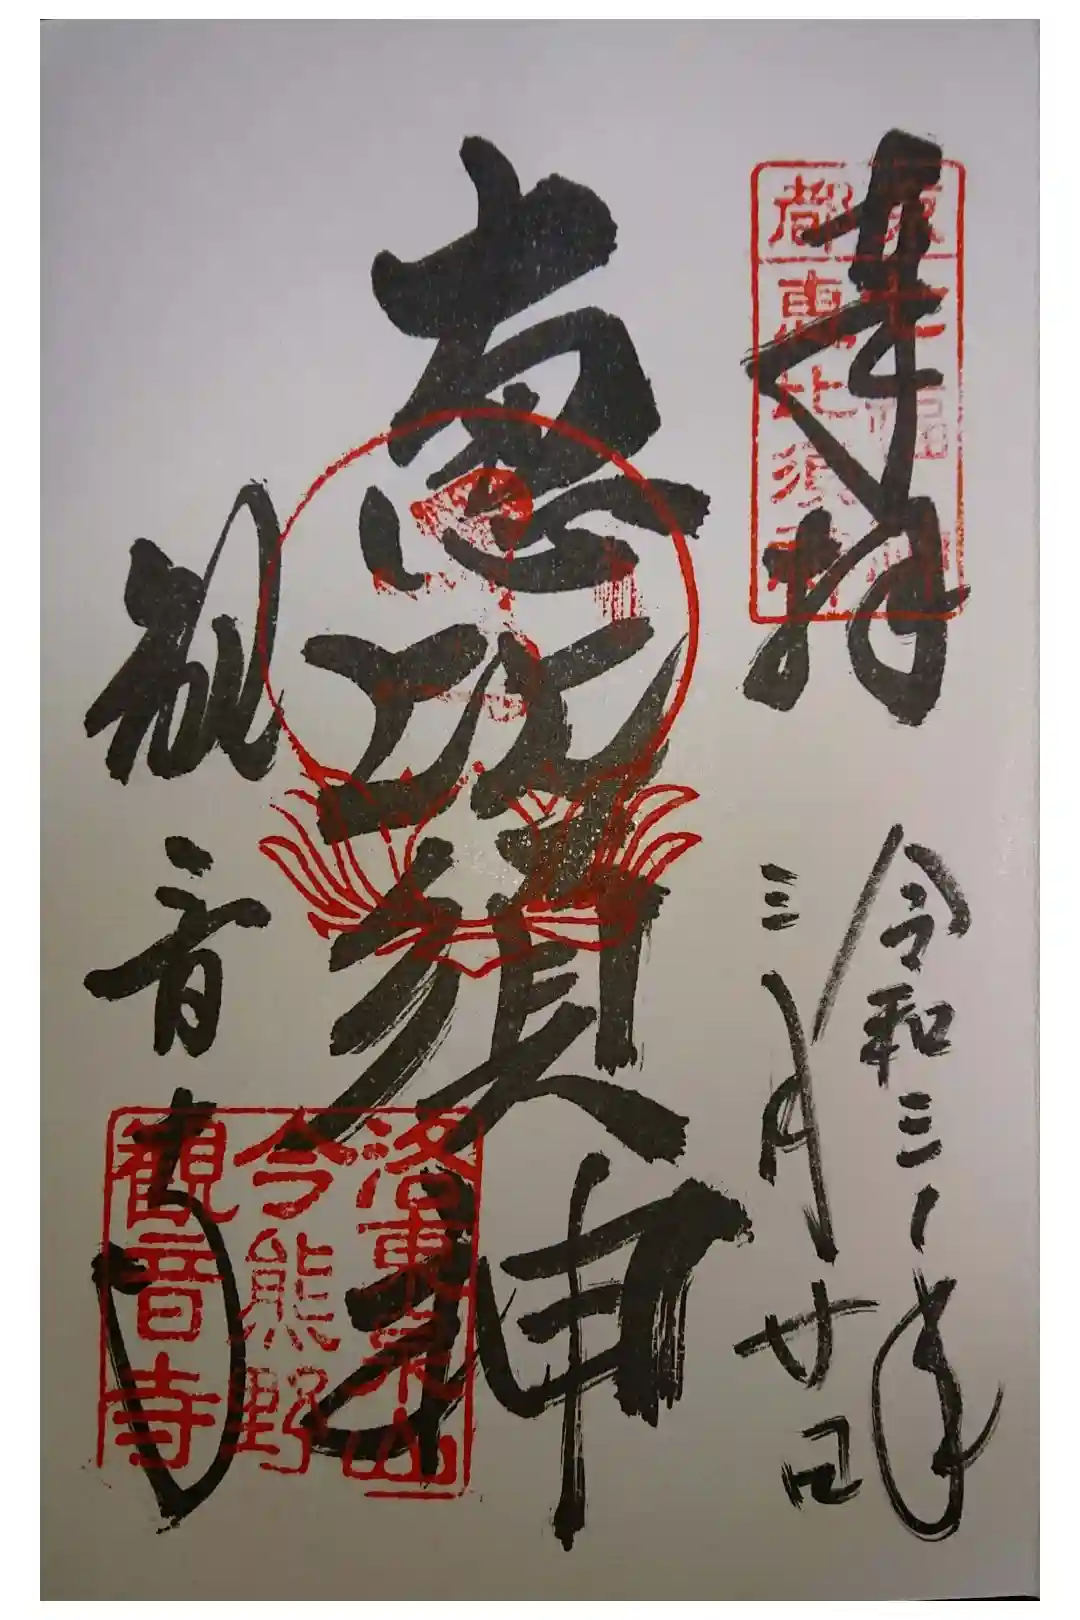 奉拝
令和三年
三月廿日
恵比須神
観音寺
京都七福神
恵比須神
洛東泉山
今熊野
観音寺